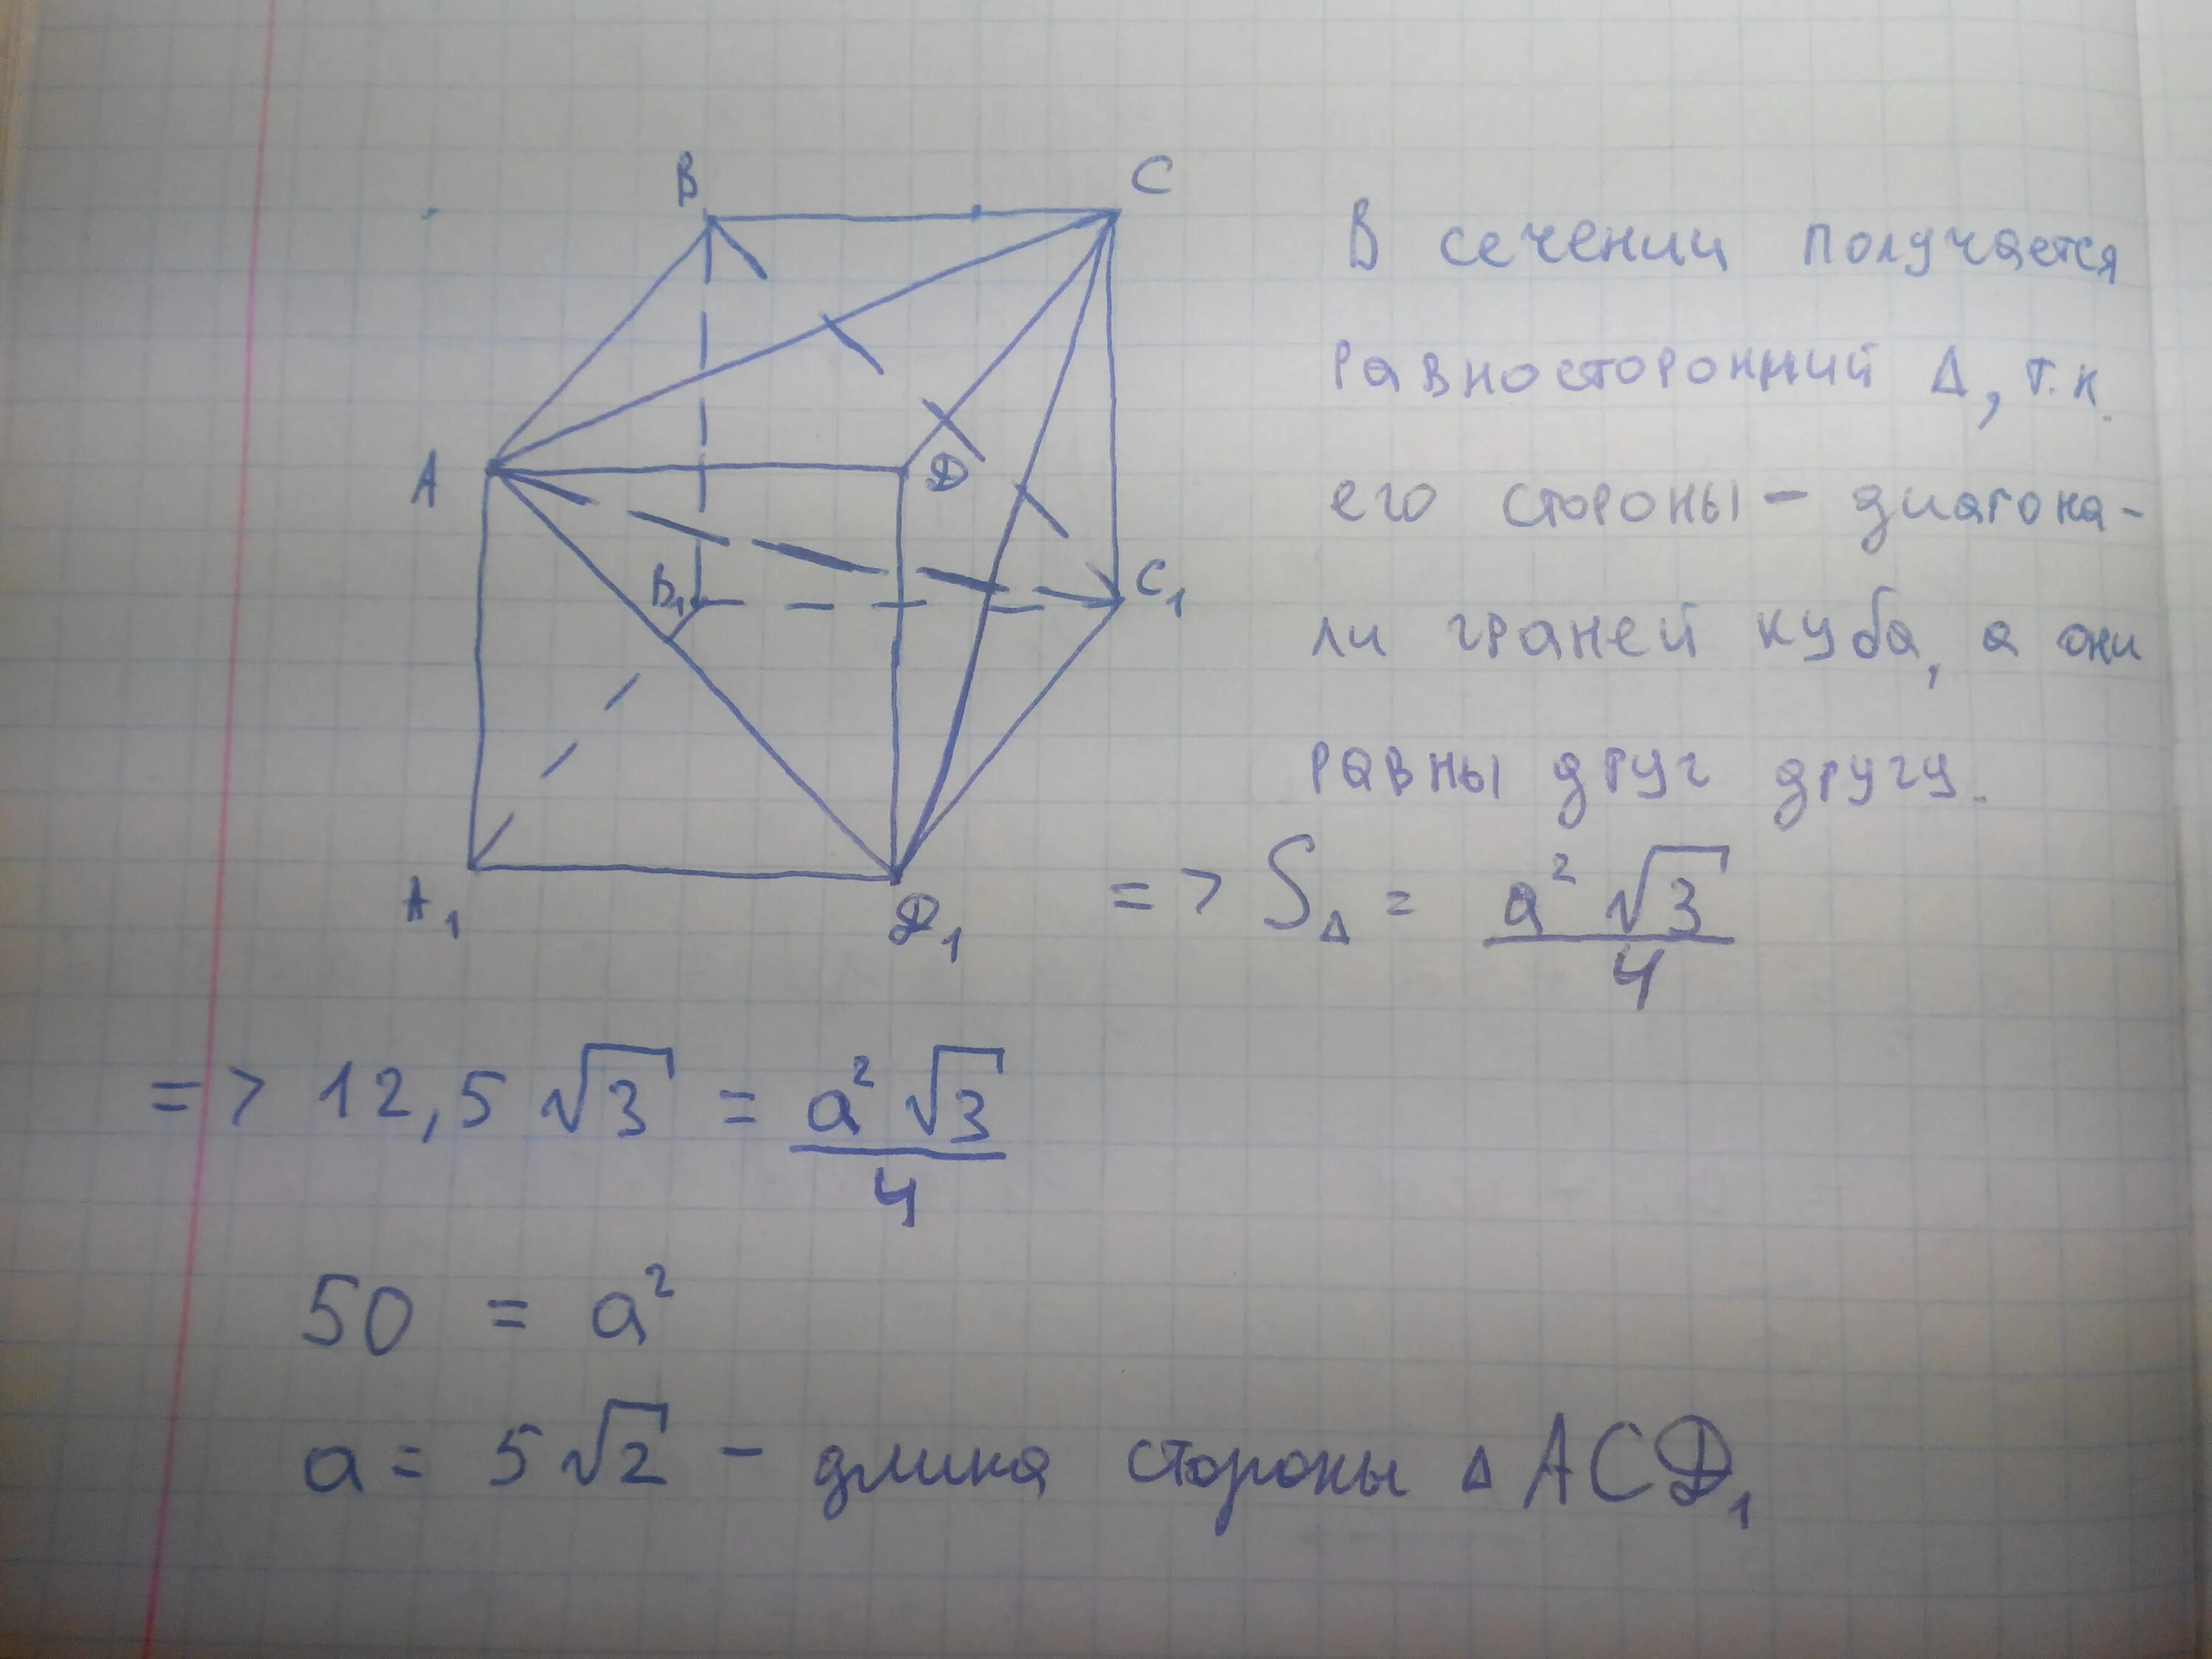 B
C
A
D
B₁
C₁
A₁
D₁
В сечении получается
равносторонний Δ, т.к.
его стороны - диагона-
ли граней куба, а они
равны друг другу.
=> S_Δ = a²√3/4
=> 12,5√3 = a²√3/4
50 = a²
a = 5√2 - длина стороны Δ ACD₁